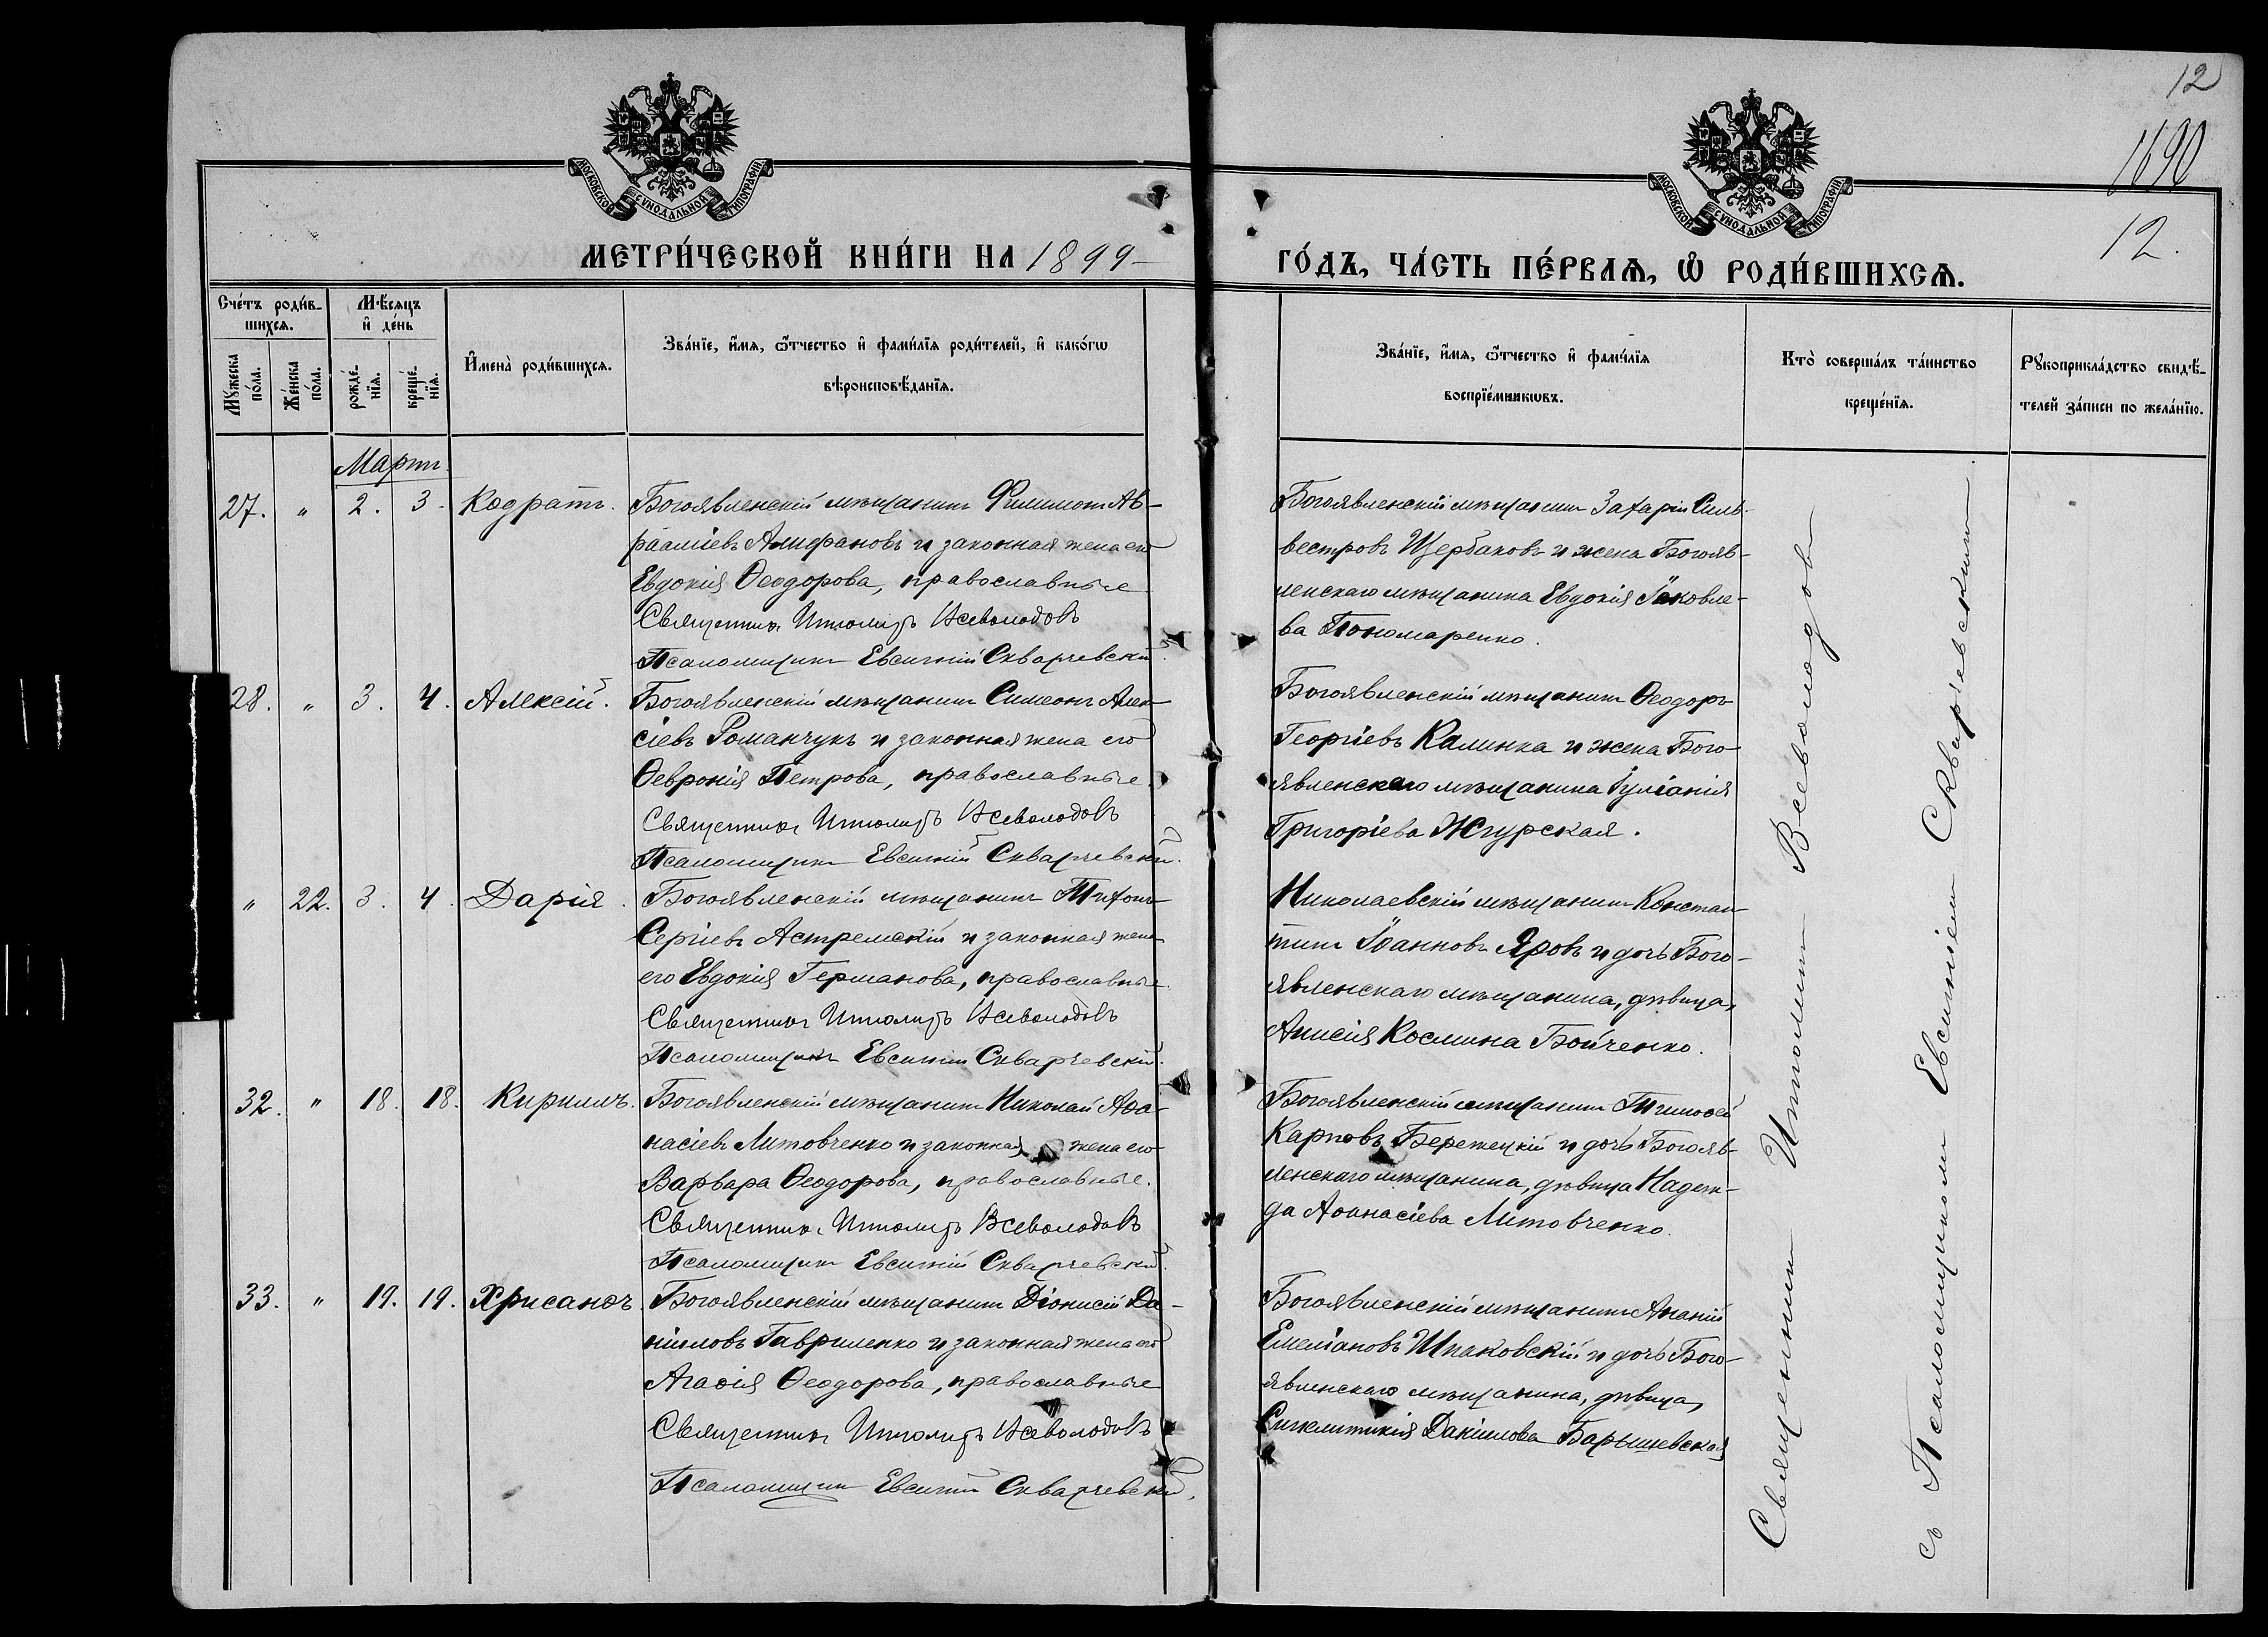 12
1690
12.
МОСКОВСКОЙ СѴНОДАЛЬНОЙ ТИПОГРАФІИ
МОСКОВСКОЙ СѴНОДАЛЬНОЙ ТИПОГРАФІИ
МЕТРИ́ЧЕСКОЙ КНИ́ГИ НА 1899
ГО́ДЪ, ЧА́СТЬ ПЕ́РВАѦ, Ѡ РОДИ́ВШИХСѦ.
Сче́тъ роди́в-
шихсѧ.
Мꙋ́жеска
по́ла.
Же́нска
по́ла.
Мѣ́сѧцъ
и҆ де́нь
рожде́-
нїѧ.
креще́-
нїѧ.
И҆мена̀ роди́вшихсѧ.
Зва́нїе, и҆́мѧ, ѻ҆́тчество и҆ фами́лїѧ роди́телей, и҆ како́гѡ
вѣроисповѣ́данїѧ.
Зва́нїе, и҆́мѧ, ѻ҆́тчество и҆ фами́лїѧ
воспрїе́мникѡвъ.
Кто̀ соверша́лъ та́инство
креще́нїѧ.
Рꙋкоприкла́дство свидѣ́-
телей за́писи по жела́нїю.
Мартъ.
27. " 2. 3. Кодратъ. Богоявленскій мѣщанинъ Филимонъ Ав-
рааміевъ Алифановъ и законная жена его
Евдокія Ѳеодорова, православные
Священникъ Ипполитъ Всеволодовъ
Псаломщикъ Евсигній Скварчевскій.
Богоявленскій мѣщанинъ Захарій Силь-
вестровъ Щербаковъ и жена Богояв-
ленскаго мѣщанина Евдокія Іаковле-
ва Пономаренко.
28. " 3. 4. Алексій. Богоявленскій мѣщанинъ Симеонъ Алек-
сіевъ Романчукъ и законная жена его
Ѳевронія Петрова, православные.
Священникъ Ипполитъ Всеволодовъ
Псаломщикъ Евсигній Скварчевскій.
Богоявленскій мѣщанинъ Ѳеодоръ
Георгіевъ Калинка и жена Бого-
явленскаго мѣщанина Іуліанія
Григоріева Жгурская.
" 22. 3. 4. Дарія. Богоявленскій мѣщанинъ Тихонъ
Сергіевъ Астремскій и законная жена
его Евдокія Германова, православные.
Священникъ Ипполитъ Всеволодовъ
Псаломщикъ Евсигній Скварчевскій.
Николаевскій мѣщанинъ Констан-
тинъ Іоанновъ Яровъ и дочь Бого-
явленскаго мѣщанина, дѣвица,
Анисія Космина Бойченко.
32. " 18. 18. Кириллъ. Богоявленскій мѣщанинъ Николай Аѳа-
насіевъ Литовченко и законная жена его
Варвара Ѳеодорова, православные.
Священникъ Ипполитъ Всеволодовъ
Псаломщикъ Евсигній Скварчевскій.
Богоявленскій мѣщанинъ Тимоѳей
Карповъ Бережецкій и дочь Богояв-
ленскаго мѣщанина, дѣвица Надеж-
да Аѳанасіева Литовченко.
33. " 19. 19. Хрисанѳъ. Богоявленскій мѣщанинъ Діонисій Да-
ніиловъ Гавриленко и законная жена его
Агаѳія Ѳеодорова, православные
Священникъ Ипполитъ Всеволодовъ
Псаломщикъ Евсигній Скварчевскій.
Богоявленскій мѣщанинъ Ананій
Емеліановъ Шпаковскій и дочь Бого-
явленскаго мѣщанина, дѣвица,
Синклитикія Даніилова Барышевская
Священникъ Ипполитъ Всеволодовъ
съ Псаломщикомъ Евсигніемъ Скварчевскимъ.